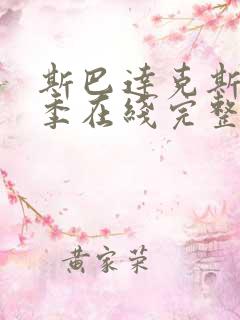 斯巴达克斯
季在线完整
黄家荣